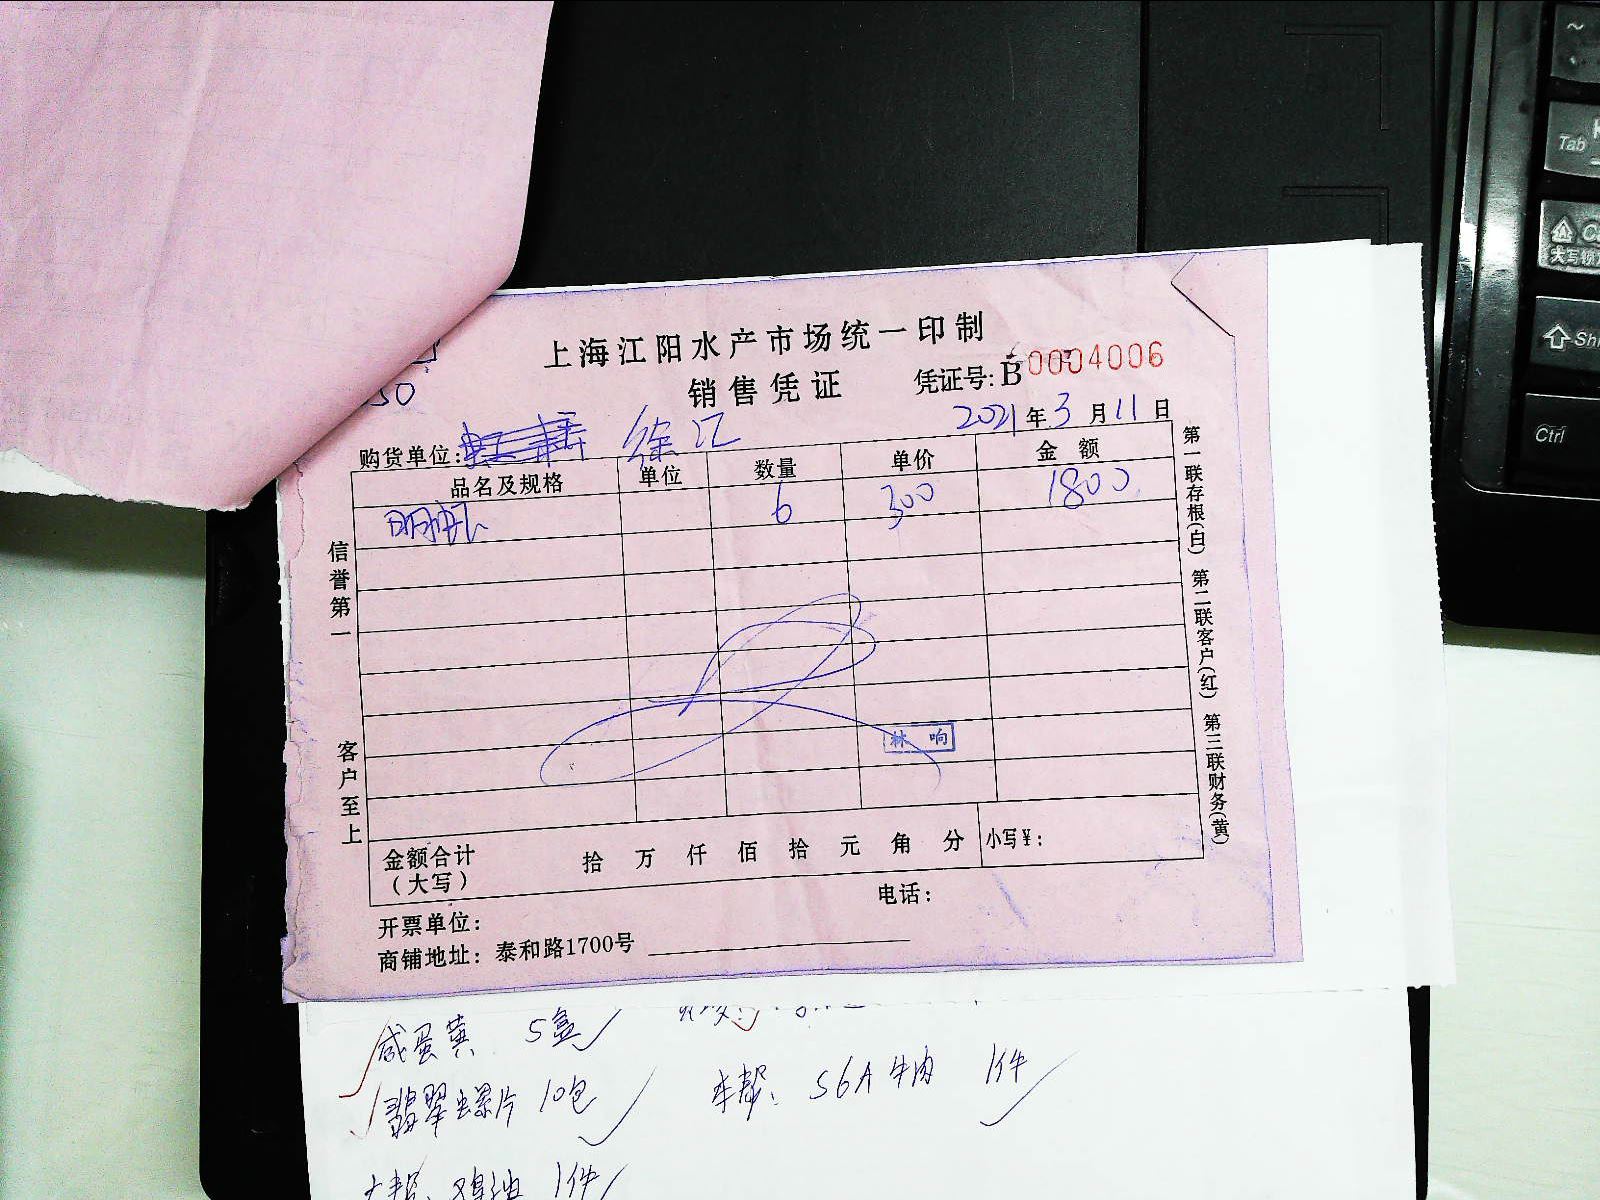 上海江阳水产市场统一印制
销售凭证
凭证号: B0004006
50
2021年3月11日
购货单位: 徐汇
品名及规格 单位 数量 单价 金额
明虾 6 300 1800
信誉第一
客户至上
林响
第一联存根(白) 第二联客户(红) 第三联财务(黄)
金额合计(大写) 拾 万 仟 佰 拾 元 角 分 小写¥:
电话:
开票单位:
商铺地址: 泰和路1700号
咸蛋黄 5盒
翡翠螺片 10包 S6A 牛肉 1件
1件
Tab
大写锁
Ctrl